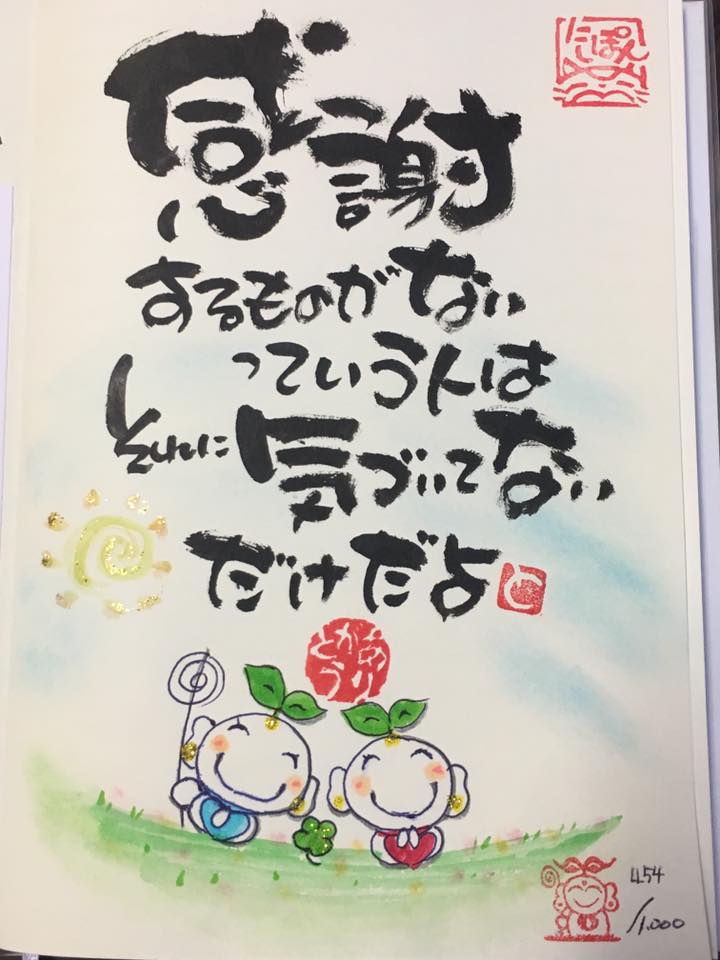 感謝
するものがない
っていう人は
それに気づいてない
だけだよ
にっぽん
454
/1.000